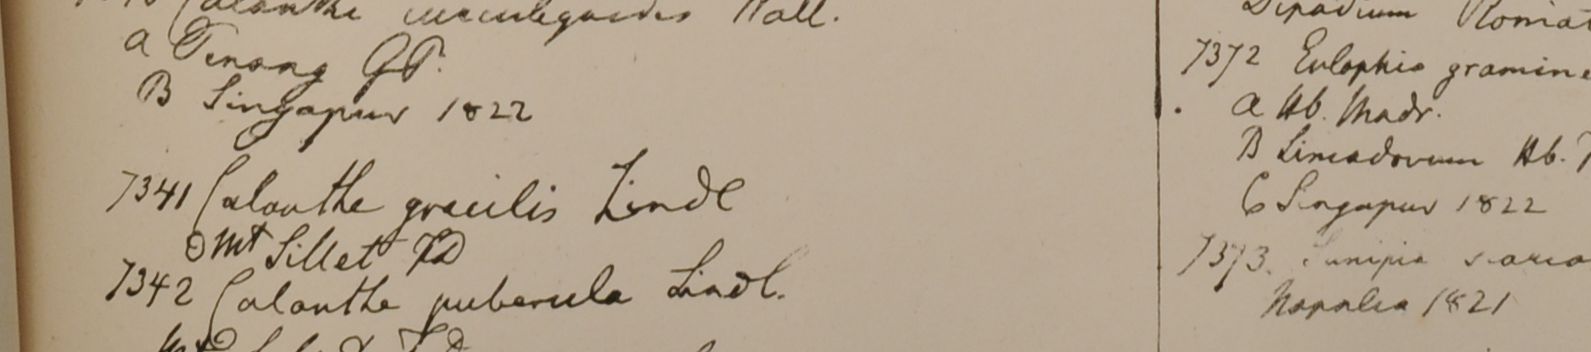 Calanthe curculigoides Wall.
a Penang GP.
B Singapur 1822
7341 Calanthe gracilis Lindl
Mt Sillet FD
7342 Calanthe puberula Lindl.
Dipodium
7372 Eulophia gramine
a Hb. Madr.
B Limodorum Hb.
C Singapur 1822
7373. Sunipia scario
Napalia 1821